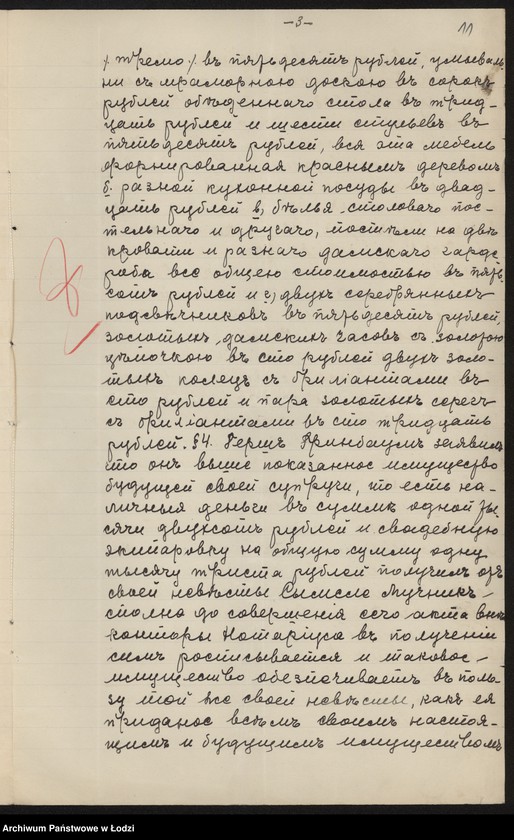 -3-
11
/ тремо / въ пятьдесятъ рублей, умываль-
ни съ мраморною доскою въ сорокъ
рублей обѣденнаго стола въ трид-
цать рублей и шести стульевъ въ
пятьдесятъ рублей, вся эта мебель
форнированная краснымъ деревомъ
б. разной кухонной посуды въ двад-
цать рублей в, бѣлья столоваго пос-
тельнаго и другаго, постели на двѣ
кровати и разнаго дамскаго гарде-
роба все общею стоимостью въ пять
сотъ рублей и г, двухъ серебрянныхъ
подсвѣчниковъ въ пятьдесятъ рублей,
золотыхъ дамскихъ часовъ съ золотою
цѣпочкою въ сто рублей двухъ золо-
тыхъ колецъ съ бриліантами въ
сто рублей и пара золотыхъ серегъ
съ бриліантами въ сто тридцать
рублей. §4. Гершъ заявилъ
что онъ выше показанное имущество
будущей своей супруги, то есть на-
личныя деньги въ суммѣ одной ты-
сячи двухсотъ рублей и свадебную
экипировку на общую сумму одну
тысячу триста рублей получилъ отъ
своей невѣсты Мучникъ
сполна до совершенія сего акта внѣ
конторы Нотаріуса въ полученіи
симъ росписывается и таковое
имущество обезпечиваетъ въ поль-
зу той же своей невѣсты, какъ ея
приданое всѣмъ своимъ настоя-
щимъ и будущимъ имуществомъ
Archiwum Państwowe w Łodzi